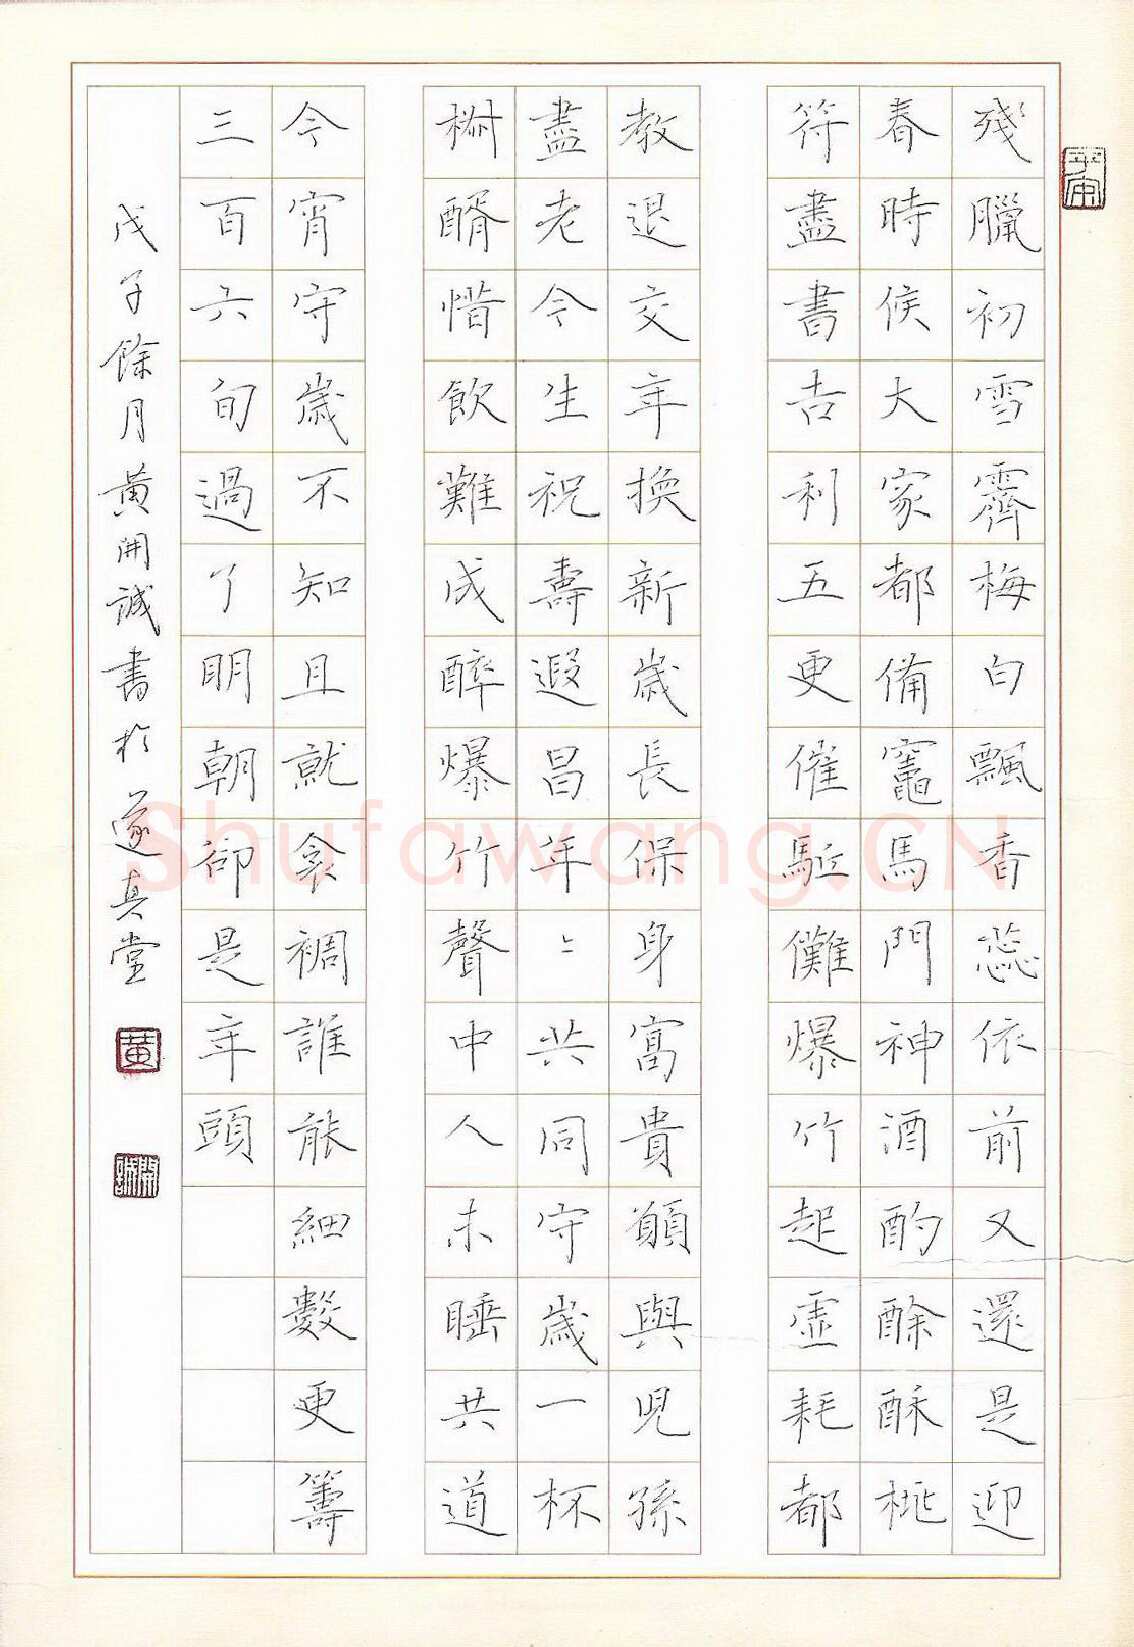 殘臘初雪霽梅白飄香蕊依前又還是迎
春時候大家都備竈馬門神酒酌酴酥桃
符盡書吉利五更催驅儺爆竹起虛耗都
教退交年換新歲長保身富貴願與兒孫
盡老今生祝壽遐昌年〻共同守歲一杯
椒醑惜飲難成醉爆竹聲中人未睡共道
今宵守歲不知且就衾裯誰能細數更籌
三百六旬過了明朝卻是年頭
戊子餘月黃開誠書於遂真堂
黃
開誠
Shufawang.CN